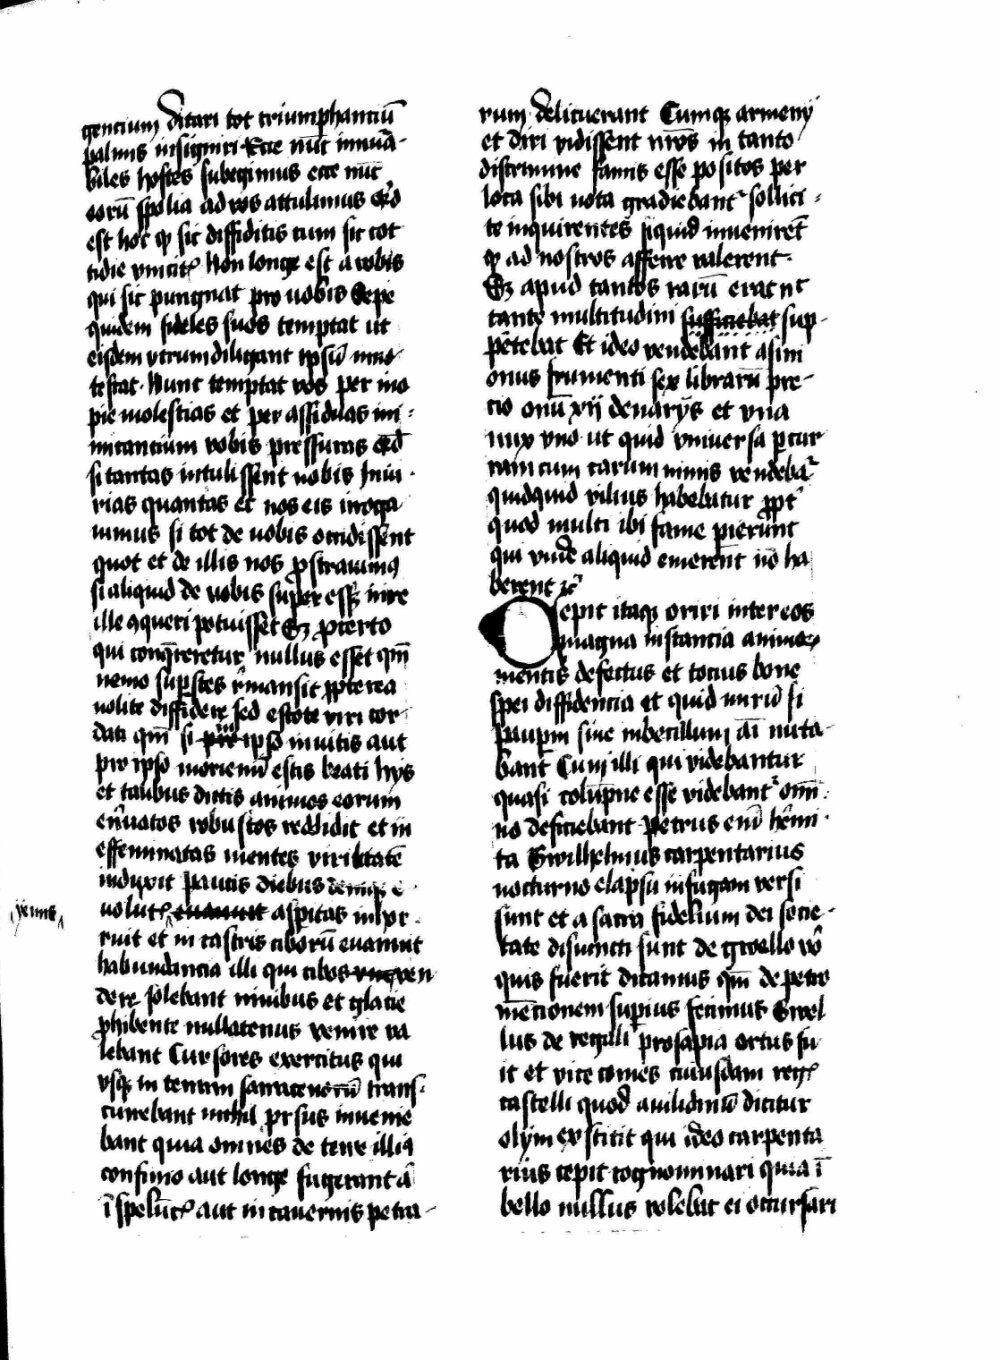 gencium ditari tot triumphanciū
palmis insigniri Ecce nūc innūa-
biles hostes subegimus ecce nūc
eorū spolia ad vos attulimus Qͥd
est hoc qͥ sic diffiditis cum sic cot
tidie vincitꝭ Non longe est a vobis
qui sic pungnat pro uobis Sepe
quidem fideles suos temptat ut
eisdem vtrum diligant ipsū
testat. Nunc temptat vos per ino
pie molestias et per assiduas ini-
mitancium vobis pressuras Qͥd
si tantas intulissent uobis Iniu-
rias quantas et nos eis iroga
uimus si tot de uobis occidissent
quot et de illis nos ꝓstrauimꝰ
si aliquid de uobis super essꝫ iure
ille ꝯqueri potuisset Sꝫ ꝓcerto
qui conq̄reretur nullus esset qm̄
nemo suꝑstes rͤmansit ꝓpterea
nolite diffidere sed estote viri cor
dati qm̄ si ipso inuitis aut
pro ipso moriemī estis beati hijs
et talibus dictis animos eorum
en̄uatos robustos reddidit et in
effeminatas mentes virilitatē
induxit Paucis diebus denique e
uolutꝭ ^ aspitas inhor
yemis
ruit et in castris ciborū euanuit
habundancia illi qui cibos ven
dere solebant niuibus et glacie
ꝓhibente nullatenus venire va
lebant Cursores exercitus qui
vsqꝫ in terram sarracenorū trans-
currebant nichil ꝓrsus inuenie
bant quia omnes de terre illiꝰ
confinio aut longe fugerant ā
ī spelūcꝭ aut in cauernis petra-
rum delituerant Cumqꝫ armenij
et Siri vidissent nr̄os in tanto
discrimine famis esse positos per
loca sibi nota gradiebantͬ sollici-
te inquirentes siquid inuenirēt
qͥ ad nostros afferre valerent.
Sꝫ apud tantos rarū erat nͨ
tante multitudini sufficiebat sup-
petebat Et ideo vendebant asini
onus frumenti sex librarū pre-
cio onū xij denarijs et vna
nux vno ut quid vniuersa ꝑcur
ram cum carum nimis vendebaͬ
quidquid vilius habebatur ꝓpt̾
quod multi ibi fame ꝑierunt
qui vnde aliquid emerent nō ha
berent ⁊c̄
Cepit itaqꝫ oriri inter eos
magna instancia animo
mentis defectus et tocius bone
spei diffidencia et quid mirū si
pauꝑm siue inbecillum aī nuta-
bant Cum illi qui videbantur
quasi colūpne esse videbantͬ om̄i
no deficiebant Petrus enī heͬmi-
ta Gwilhelmus carpentarius
nocturno elapsu in fugam versi
sunt et a sacra fidelium dei socie-
tate disiuncti sunt de gwello vͦ
quis fuerit dicamus qm̄ de petro
mēcionem suꝑius fecimus Gwel
lus de regali prosapia ortus fu
it et vice comes cuiusdam regꝭ
castelli quod milidinū dicitur
olym exstitit qui ideo carpenta
rius cepit cognominari quia ī
bello nullus volebat ei occursari